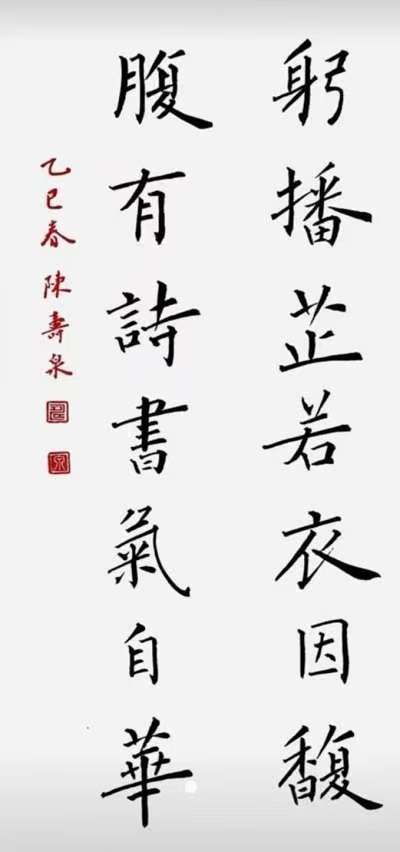 躬播芷若衣因馥
腹有詩書氣自華
乙巳春 陳壽泉